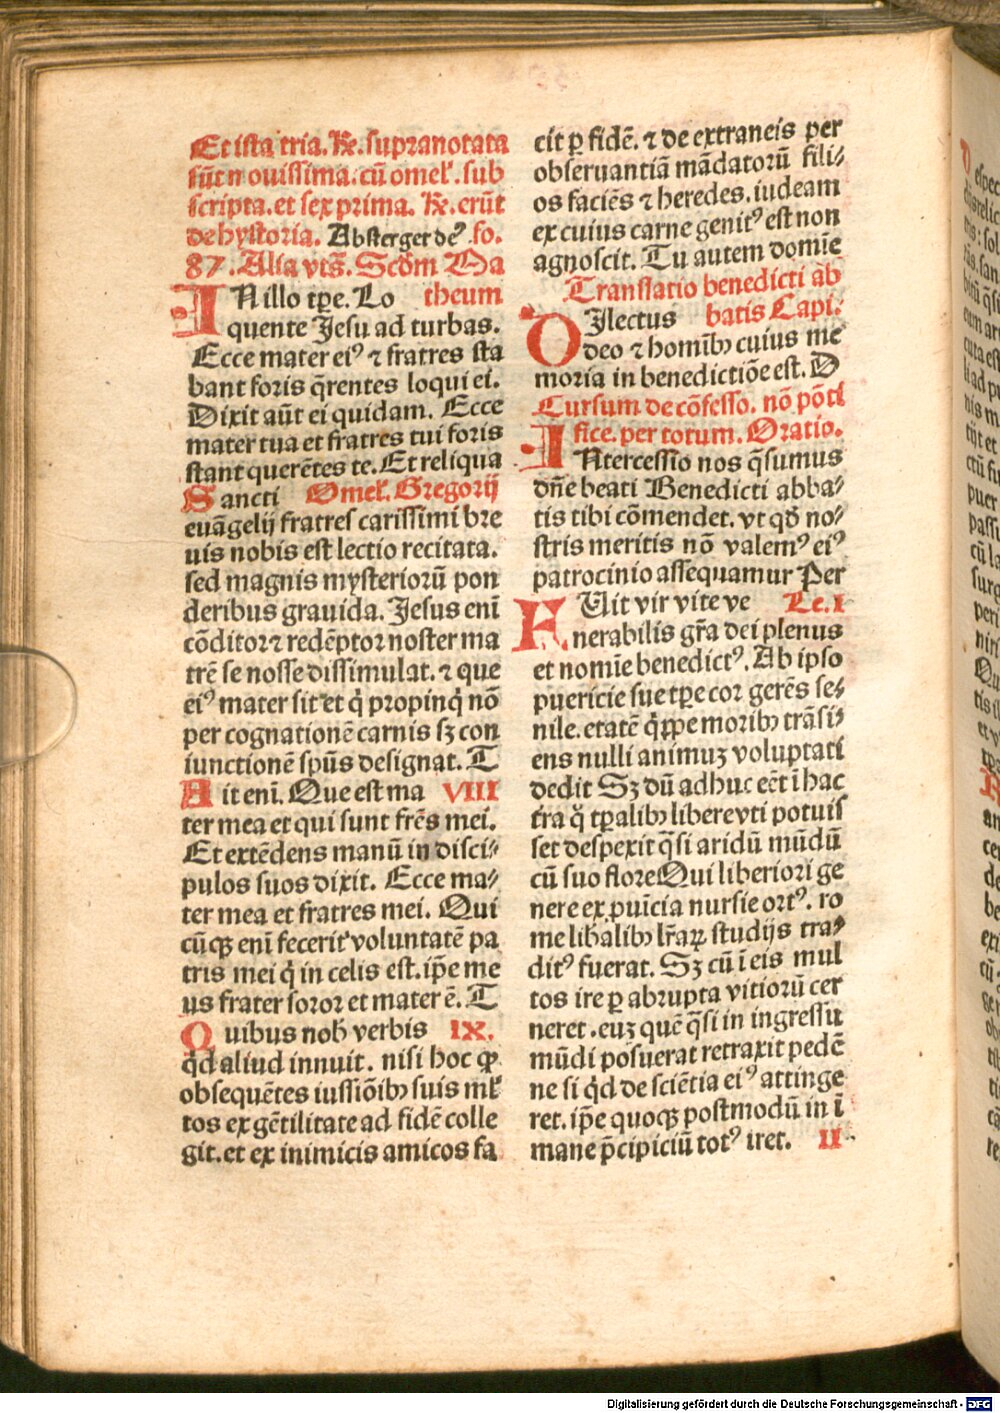 Et ista tria. Rͤ. supranotata
sūt nouissima. cū omeł. sub
scripta. et sex prima. Rͤ. erūt
de hystoria. Absterget deꝰ fo.
87. Alia vts̄. Scdm Ma
IN illo tp̄e. Lo theum
quente Jesu ad turbas.
Ecce mater eiꝰ ⁊ fratres sta
bant foris q̄rentes loqui ei.
Dixit aūt ei quidam. Ecce
mater tua et fratres tui foris
stant querētes te. Et reliqua
Sancti Omeł. Gregorij
euāgelij fratres carissimi bre
uis nobis est lectio recitata.
sed magnis mysteriorū pon
deribus grauida. Jesus enī
cōditor ⁊ redēptor noster ma
trē se nosse dissimulat. ⁊ que
eiꝰ mater sit et q̇ propinq̇ nō
per cognationē carnis sꝫ con
iunctionē sp̄us designat. T
Ait enī. Que est ma VIII
ter mea et qui sunt frēs mei.
Et extēdens manū in disci⸗
pulos suos dixit. Ecce ma⸗
ter mea et fratres mei. Qui
cūqꝫ enī fecerit voluntatē pa
tris mei q̇ in celis est. ip̄e me
us frater soror et mater ē. T
Quibus nob̄ verbis IX.
qd̄ aliud innuit. nisi hoc ꝙ
obsequētes iussiōibꝫ suis mł
tos ex gētilitate ad fidē colle
git. et ex inimicis amicos fa
cit ꝑ fidē. ⁊ de extraneis per
obseruantiā mādatorū fili⸗
os faciēs ⁊ heredes. iudeam
ex cuius carne genitꝰ est non
agnoscit. Tu autem domīe
Translatio benedicti ab
DIlectus batis Capi.
deo ⁊ homībꝫ cuius me
moria in benedictiōe est. D
Cursum de cōfesso. nō pōti
fice. per totum. Oratio.
INtercessio nos q̄sumus
dn̄e beati Benedicti abba⸗
tis tibi cōmendet. vt qd̄ no⸗
stris meritis nō valemꝰ eiꝰ
patrocinio assequamur Per
FUit vir vite ve Le. I
nerabilis gr̄a dei plenus
et nomīe benedictꝰ. Ab ipso
puericie sue tp̄e cor gerēs se⸗
nile. etatē q̇ꝑpe moribꝫ trāsi⸗
ens nulli animuꝫ voluptati
dedit Sꝫ dū adhuc eēt ī hac
tr̄a q̇ tp̄alibꝫ libere vti potuis
set despexit q̄si aridū mūdū
cū suo flore Qui liberiori ge
nere ex ꝓuīcia nursie ortꝰ. ro
me lib̄alibꝫ lr̄aꝝ studijs tra⸗
ditꝰ fuerat. Sꝫ cū ī eis mul
tos ire ꝑ abrupta vitiorū cer
neret. euꝫ quē q̄si in ingressu
mūdi posuerat retraxit pedē
ne si q̇d de sciētia eiꝰ attinge
ret. ip̄e quoqꝫ postmodū in ī
mane p̄cipiciū totꝰ iret. II
Digitalisierung gefördert durch die Deutsche Forschungsgemeinschaft - DFG